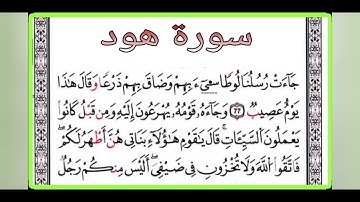 سورة هود
جَآءَتْ رُسُلُنَا لُوطًا سِيٓءَ بِهِمْ وَضَاقَ بِهِمْ ذَرْعًا وَقَالَ هَٰذَا
يَوْمٌ عَصِيبٌ ٧٧ وَجَآءَهُۥ قَوْمُهُۥ يُهْرَعُونَ إِلَيْهِ وَمِن قَبْلُ كَانُوا۟
يَعْمَلُونَ ٱلسَّيِّـَٔاتِ ۚ قَالَ يَٰقَوْمِ هَٰٓؤُلَآءِ بَنَاتِى هُنَّ أَطْهَرُ لَكُمْ ۖ
فَٱتَّقُوا۟ ٱللَّهَ وَلَا تُخْزُونِ فِى ضَيْفِىٓ ۖ أَلَيْسَ مِنكُمْ رَجُلٌ